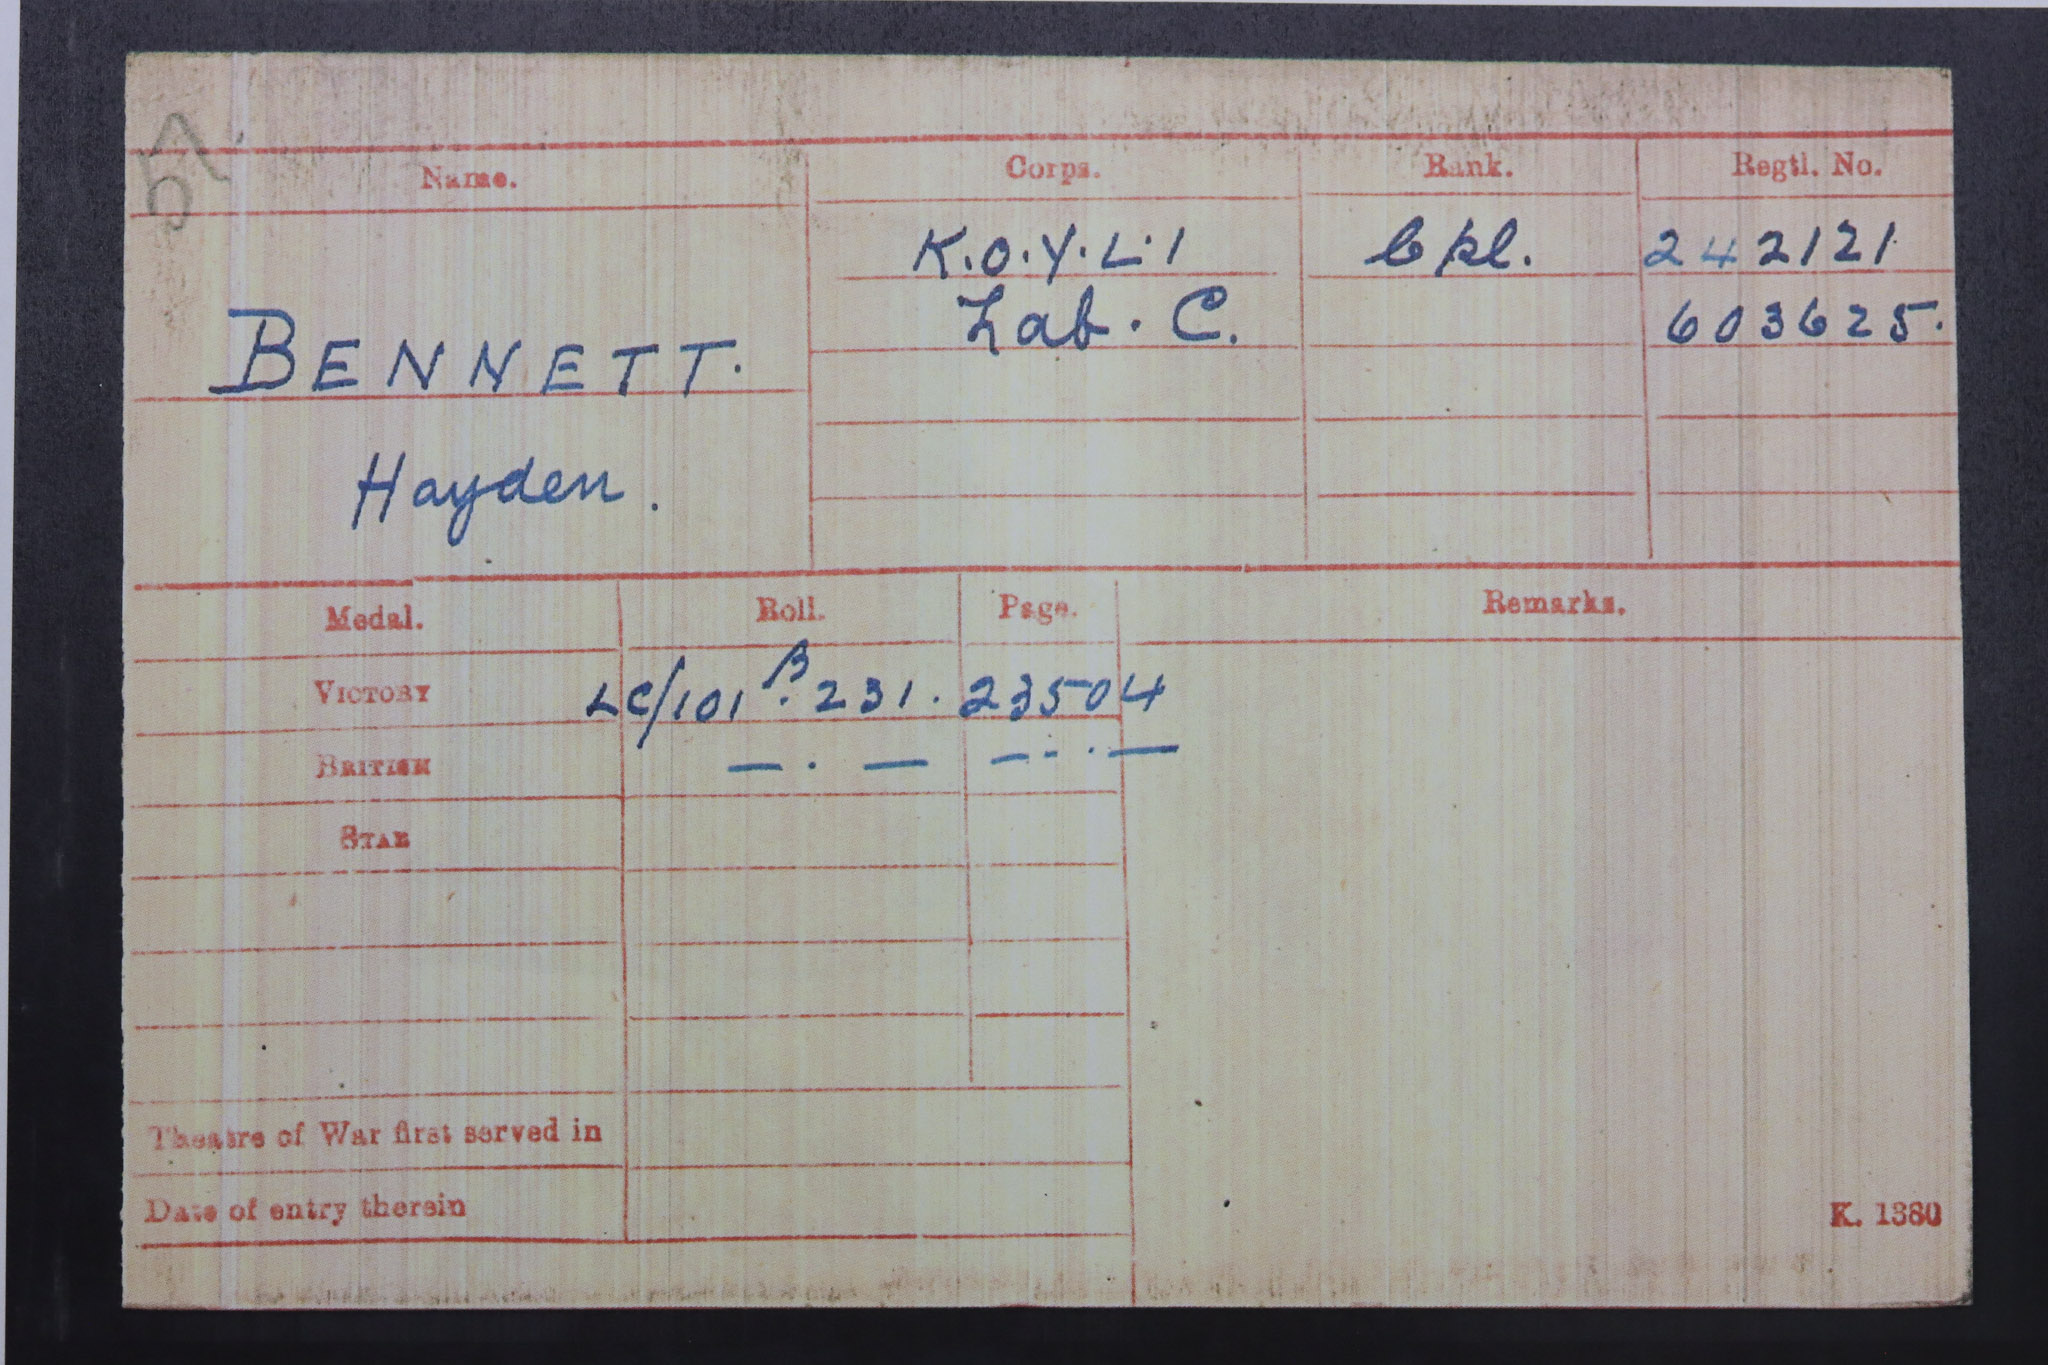 Name. Corps. Rank. Regtl. No.
K.O.Y.L.I Cpl. 242121
Lab. C. 603625.
BENNETT.
Hayden.
Medal. Roll. Page. Remarks.
VICTORY LC/101 B. 231. 23504
BRITISH — . — — - . —
STAR
Theatre of War first served in
Date of entry therein
K. 1380